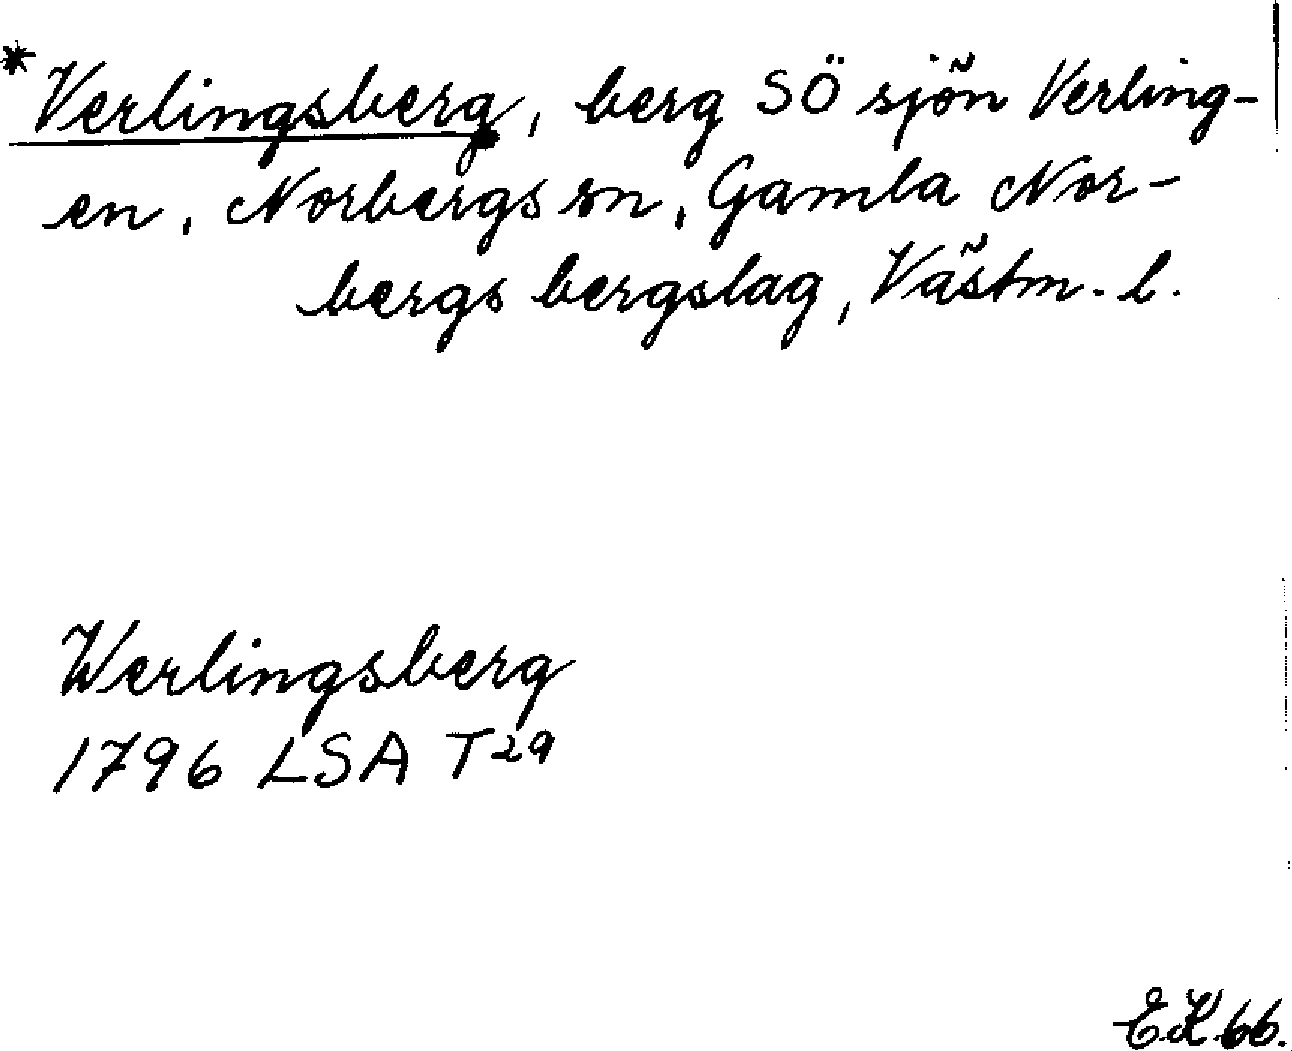 *Verlingsberg, berg SÖ sjön Verling-
en, Norbergs sn, Gamla Nor-
bergs bergslag, Västm. l.
Werlingsberg
1796 LSA T29
E.K. 66.